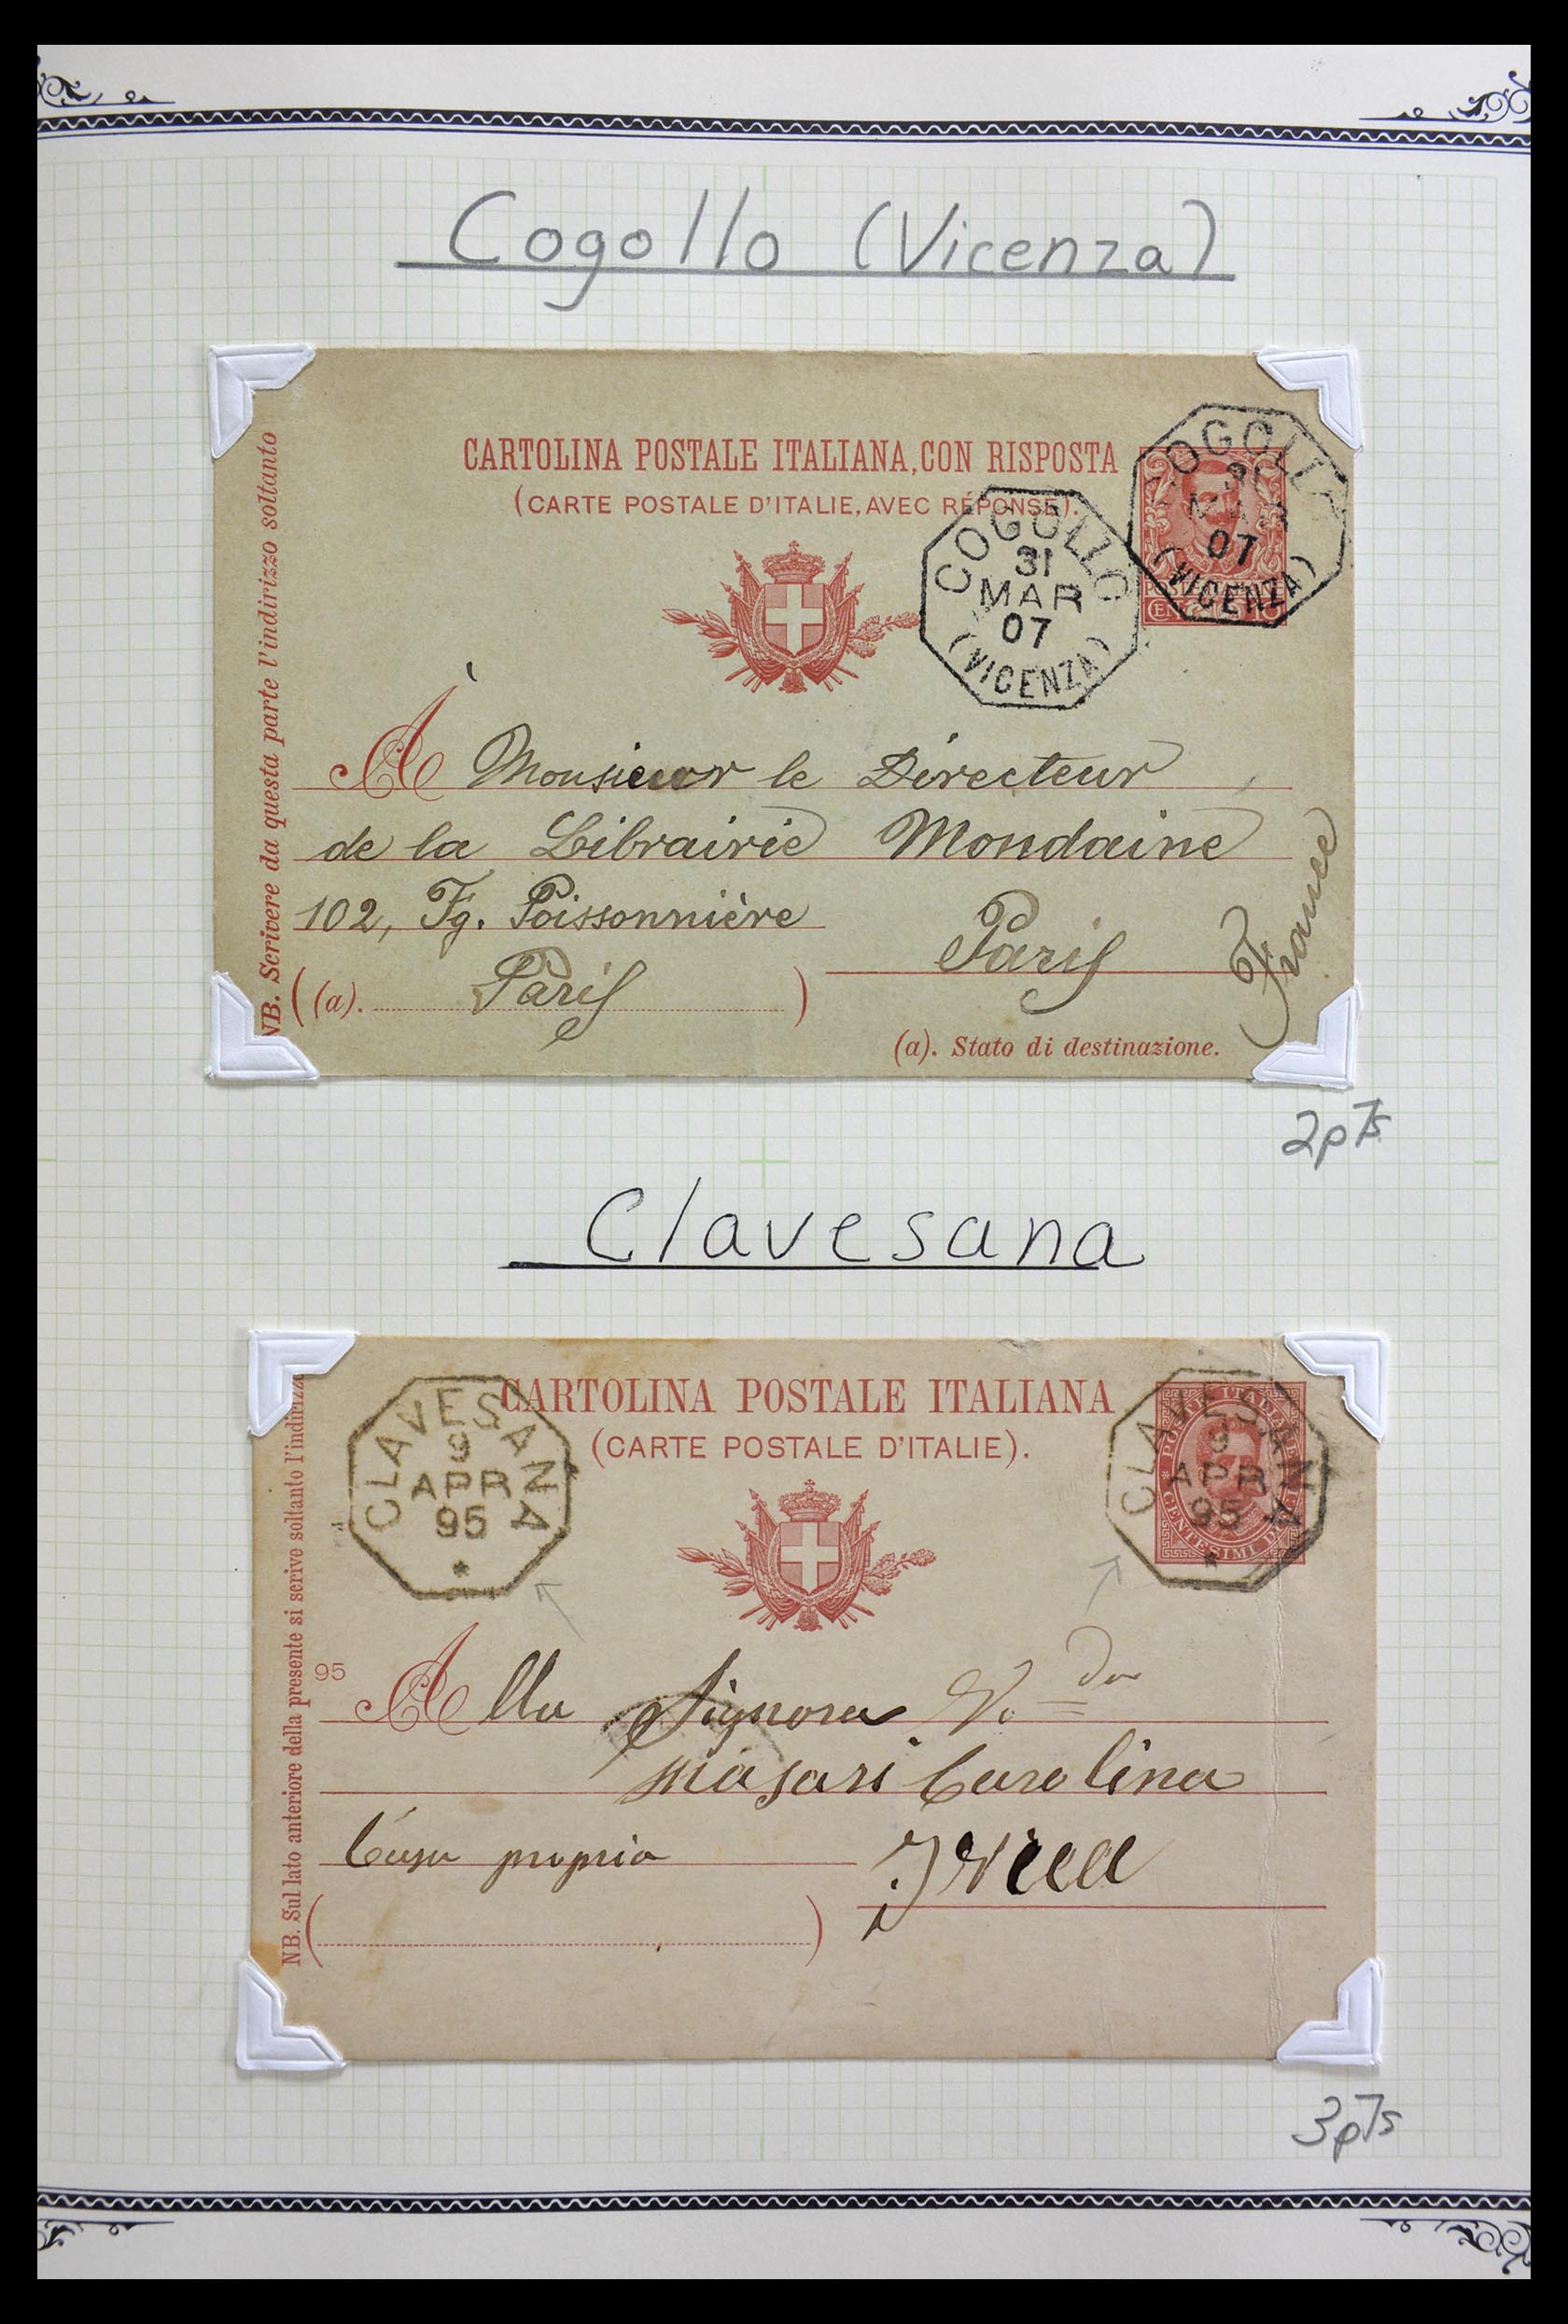 Cogollo (Vicenza)
NB. Scrivere da questa parte l'indirizzo soltanto
CARTOLINA POSTALE ITALIANA, CON RISPOSTA
(CARTE POSTALE D'ITALIE, AVEC RÉPONSE).
COGOLLO
31
MAR
07
(VICENZA)
COGOLLO
31
MAR
07
(VICENZA)
À Monsieur le Directeur
de la Librairie Mondaine
102, Fg. Poissonnière
Paris
France
((a). Paris)
(a). Stato di destinazione.
2pts
Clavesana
NB. Sul lato anteriore della presente si scrive soltanto l'indirizzo
CARTOLINA POSTALE ITALIANA
(CARTE POSTALE D'ITALIE).
CLAVESANA
9
APR
95
*
CLAVESANA
9
APR
95
*
95
Alla Signora Va
Masari Carolina
Casa propria
Ivrea
3pts